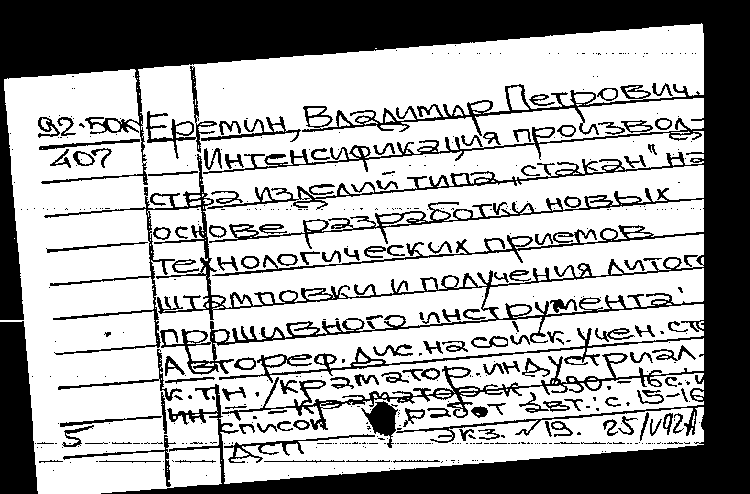 92-50к Еремин, Владимир Петрович.
407 Интенсификация производ-
ства изделий типа „стакан" на
основе разработки новых
технологических приемов
штамповки и получения литого
прошивного инструмента:
Автореф. дис. на соиск. учен. сте
к.т.н. / Краматор. индустриал.
ин-т. - Краматорск, 1990. - 16 с.:
список работ авт.: с. 15-16
5 экз. N19. 25/V92
ДСП